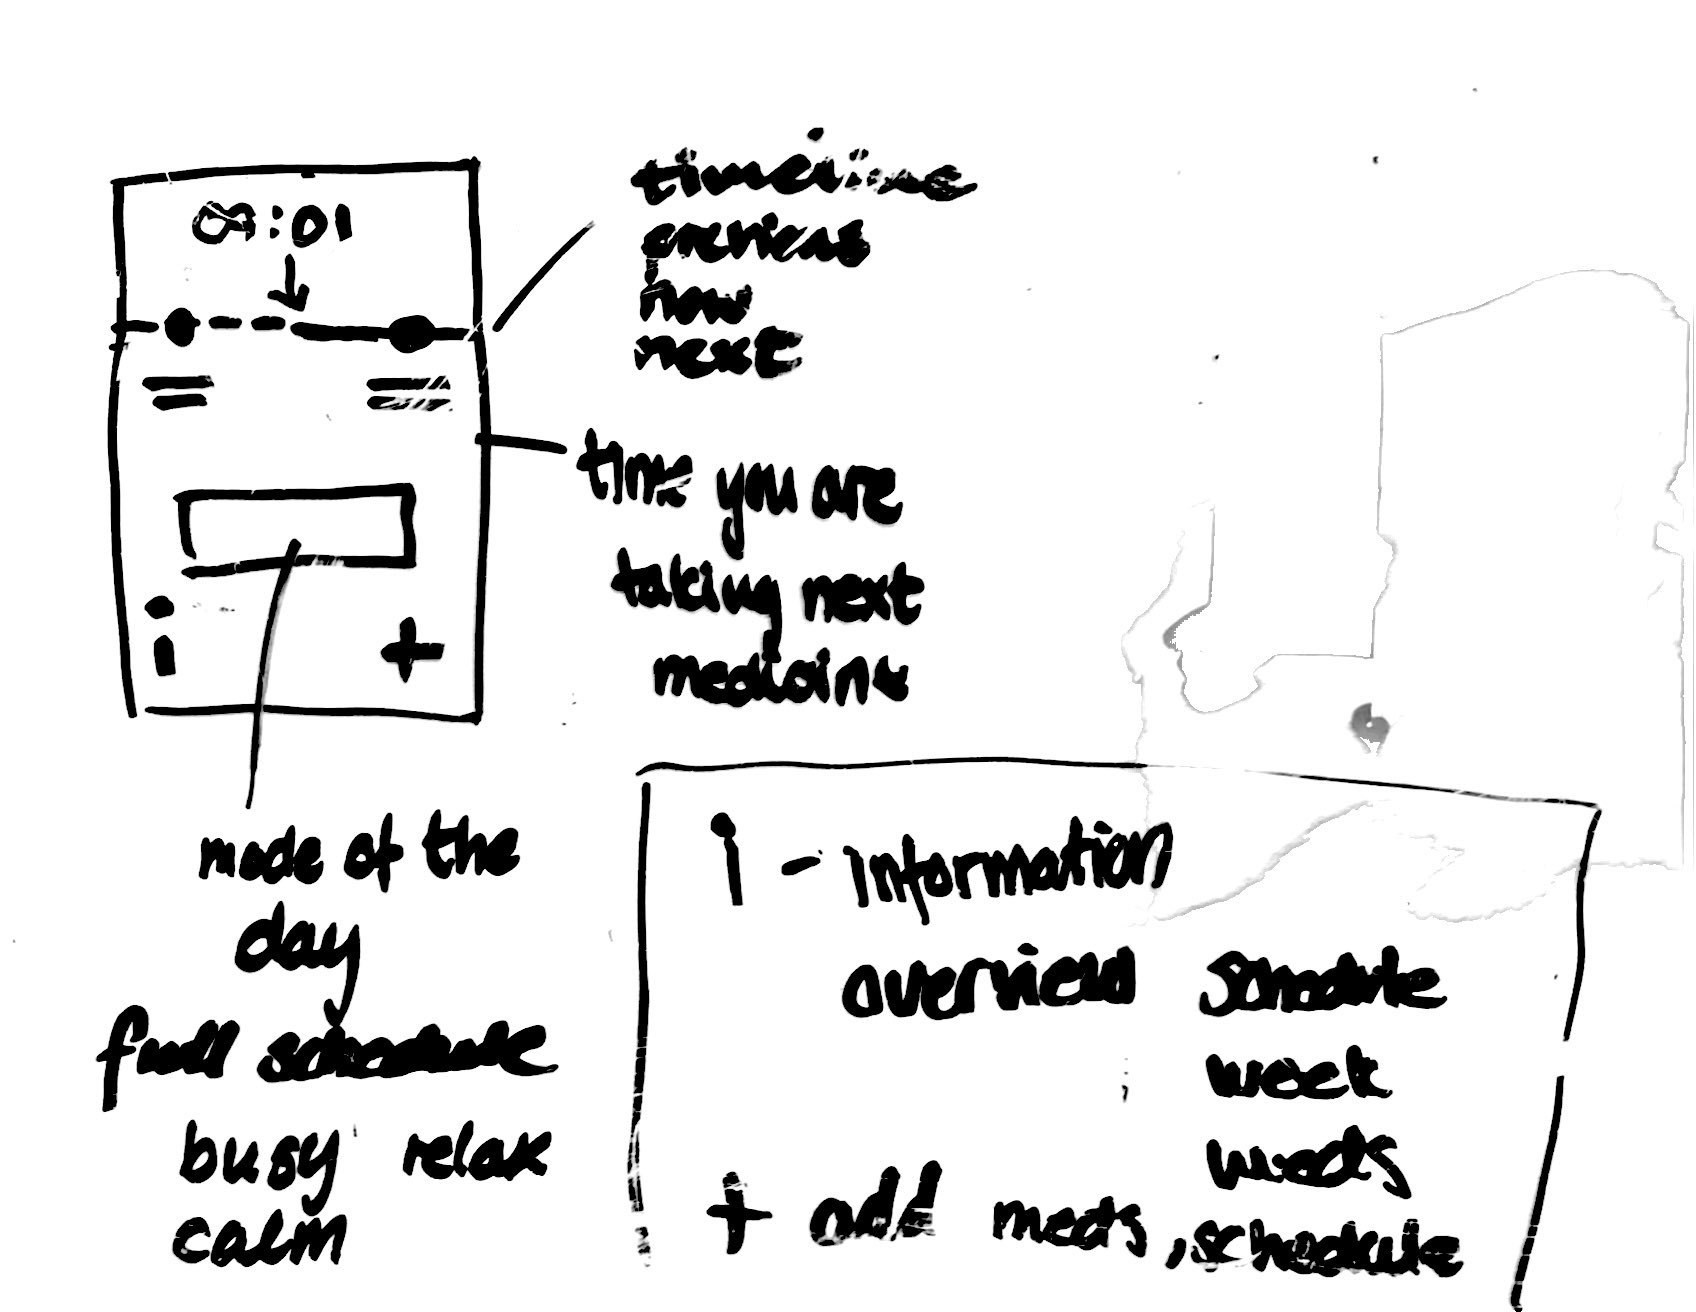 09:01
timeline
previous
now
next
time you are
taking next
medicine
i
+
mode of the
day
full schedule
busy relax
calm
i - information
overview schedule
week
meds
+ add meds, schedule